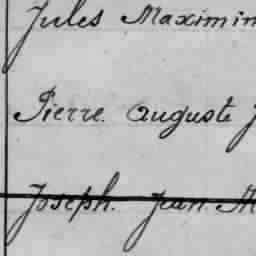 Jules Maximin
Pierre. Auguste J
Joseph. Jean. M